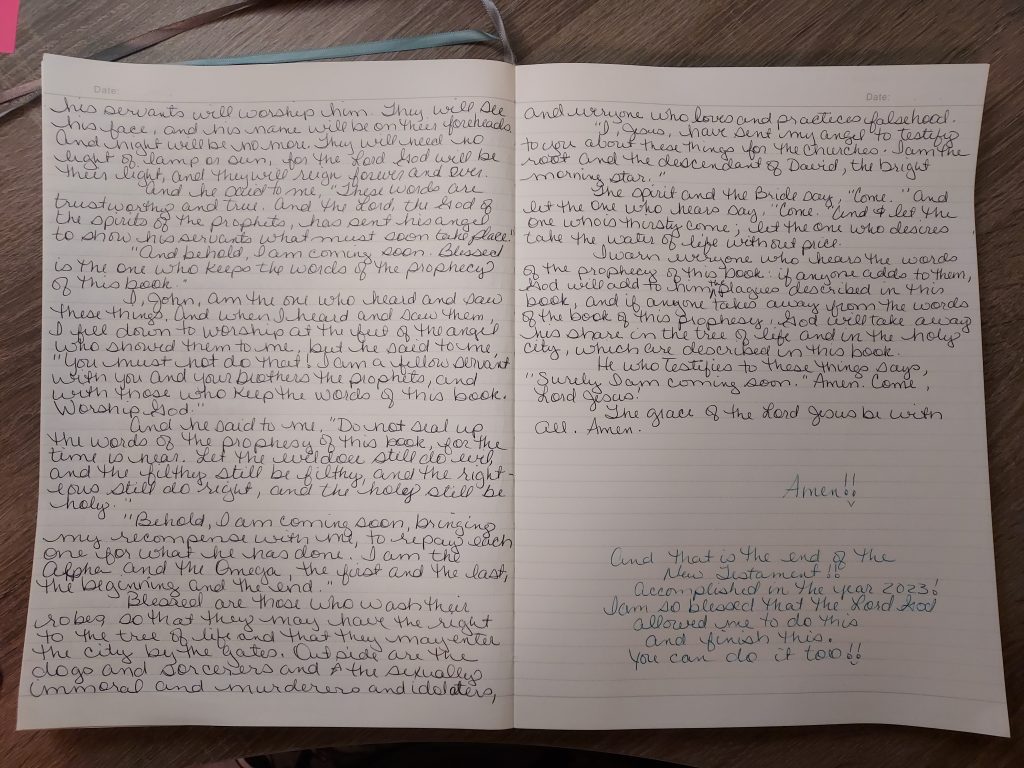 Date:
his servants will worship him. They will see
his face, and his name will be on their foreheads.
And night will be no more. They will need no
light of lamp or sun, for the Lord God will be
their light, and they will reign forever and ever.
And he said to me, "These words are
trustworthy and true. And the Lord, the God of
the spirits of the prophets, has sent his angel
to show his servants what must soon take place."
"And behold, I am coming soon. Blessed
is the one who keeps the words of the prophecy
of this book."
I, John, am the one who heard and saw
these things. And when I heard and saw them,
I fell down to worship at the feet of the angel
who showed them to me, but he said to me,
"You must not do that! I am a fellow servant
with you and your brothers the prophets, and
with those who keep the words of this book.
Worship God."
And he said to me, "Do not seal up
the words of the prophesy of this book, for the
time is near. Let the evildoer still do evil
and the filthy still be filthy, and the right-
eous still do right, and the holy still be
holy."
"Behold, I am coming soon, bringing
my recompense with me, to repay each
one for what he has done. I am the
Alpha and the Omega, the first and the last,
the beginning and the end."
Blessed are those who wash their
robes, so that they may have the right
to the tree of life and that they may enter
the city by the gates. Outside are the
dogs and sorcerers and the sexually
immoral and murderers and idolaters,
Date:
and everyone who loves and practices falsehood.
"I, Jesus, have sent my angel to testify
to you about these things for the churches. I am the
root and the descendant of David, the bright
morning star."
The spirit and the Bride say, "Come." And
let the one who hears say, "Come." And let the
one who is thirsty come; let the one who desires
take the water of life without price.
I warn everyone who hears the words
of the prophecy of this book: if anyone adds to them,
God will add to him the plagues described in this
book, and if anyone takes away from the words
of the book of this prophesy, God will take away
his share in the tree of life and in the holy
city, which are described in this book.
He who testifies to these things says,
"Surely I am coming soon." Amen. Come,
Lord Jesus!
The grace of the Lord Jesus be with
all. Amen.
Amen!!
And that is the end of the
New Testament!!
Accomplished in the year 2023!
I am so blessed that the Lord God
allowed me to do this
and finish this.
You can do it too!!